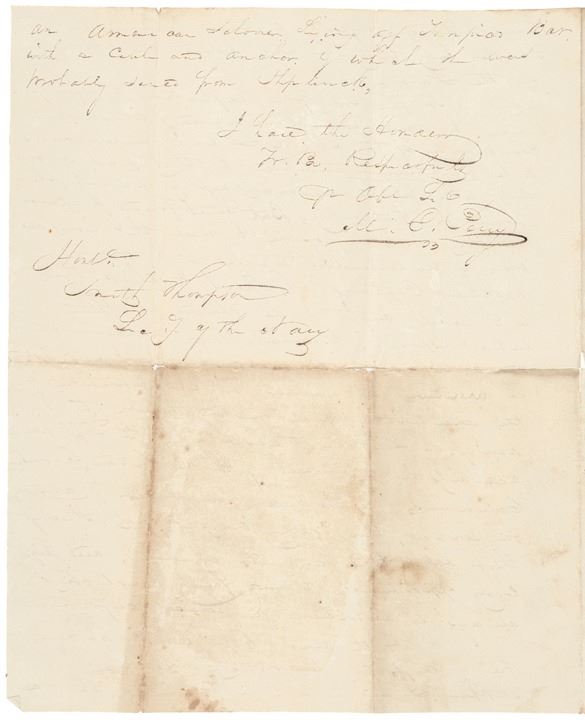 an American Schooner Lying off Tampico Bar,
with a Cable and anchor, by which She was
probably Saved from Shipwreck,
I have the Honor
To Be Respectfully
Yr Obt St
M. C. Perry
Honbl
Smith Thompson
Secy of the Navy